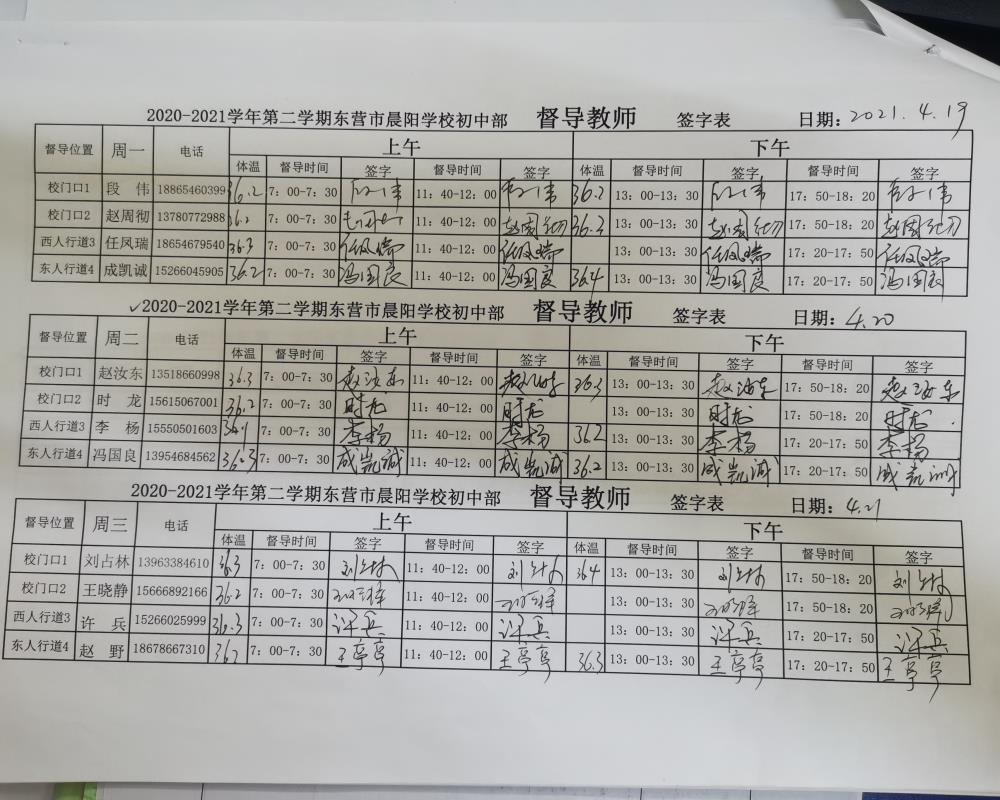 2020-2021学年第二学期东营市晨阳学校初中部 督导教师 签字表 日期：2021.4.19
督导位置 周一 电话 上午 下午
体温 督导时间 签字 督导时间 签字 体温 督导时间 签字 督导时间 签字
校门口1 段 伟 18865460399 36.2 7：00-7：30 段伟 11：40-12：00 段伟 36.2 13：00-13：30 段伟 17：50-18：20 段伟
校门口2 赵周彻 13780772988 36.2 7：00-7：30 11：40-12：00 赵周彻 36.3 13：00-13：30 赵周彻 17：50-18：20 赵周彻
西人行道3 任凤瑞 18654679540 36.3 7：00-7：30 任凤瑞 11：40-12：00 任凤瑞 13：00-13：30 任凤瑞 17：20-17：50 任凤瑞
东人行道4 成凯诚 15266045905 36.2 7：00-7：30 冯国良 11：40-12：00 冯国良 36.4 13：00-13：30 冯国良 17：20-17：50 冯国良
✓2020-2021学年第二学期东营市晨阳学校初中部 督导教师 签字表 日期：4.20
督导位置 周二 电话 上午 下午
体温 督导时间 签字 督导时间 签字 体温 督导时间 签字 督导时间 签字
校门口1 赵汝东 13518660998 36.3 7：00-7：30 赵汝东 11：40-12：00 36.3 13：00-13：30 赵汝东 17：50-18：20 赵汝东
校门口2 时 龙 15615067001 36.2 7：00-7：30 时龙 11：40-12：00 时龙 13：00-13：30 时龙 17：50-18：20 时龙
西人行道3 李 杨 15550501603 36.1 7：00-7：30 李杨 11：40-12：00 李杨 36.2 13：00-13：30 李杨 17：20-17：50 李杨
东人行道4 冯国良 13954684562 36.3 7：00-7：30 成凯诚 11：40-12：00 成凯诚 36.2 13：00-13：30 成凯诚 17：20-17：50 成凯诚
2020-2021学年第二学期东营市晨阳学校初中部 督导教师 签字表 日期：4.21
督导位置 周三 电话 上午 下午
体温 督导时间 签字 督导时间 签字 体温 督导时间 签字 督导时间 签字
校门口1 刘占林 13963384610 36.3 7：00-7：30 刘占林 11：40-12：00 刘占林 36.4 13：00-13：30 刘占林 17：50-18：20 刘占林
校门口2 王晓静 15666892166 36.2 7：00-7：30 王晓静 11：40-12：00 王晓静 13：00-13：30 王晓静 17：50-18：20 王晓静
西人行道3 许 兵 15266025999 36.3 7：00-7：30 许兵 11：40-12：00 许兵 13：00-13：30 许兵 17：20-17：50 许兵
东人行道4 赵 野 18678667310 36.2 7：00-7：30 王亭亭 11：40-12：00 王亭亭 36.3 13：00-13：30 王亭亭 17：20-17：50 王亭亭